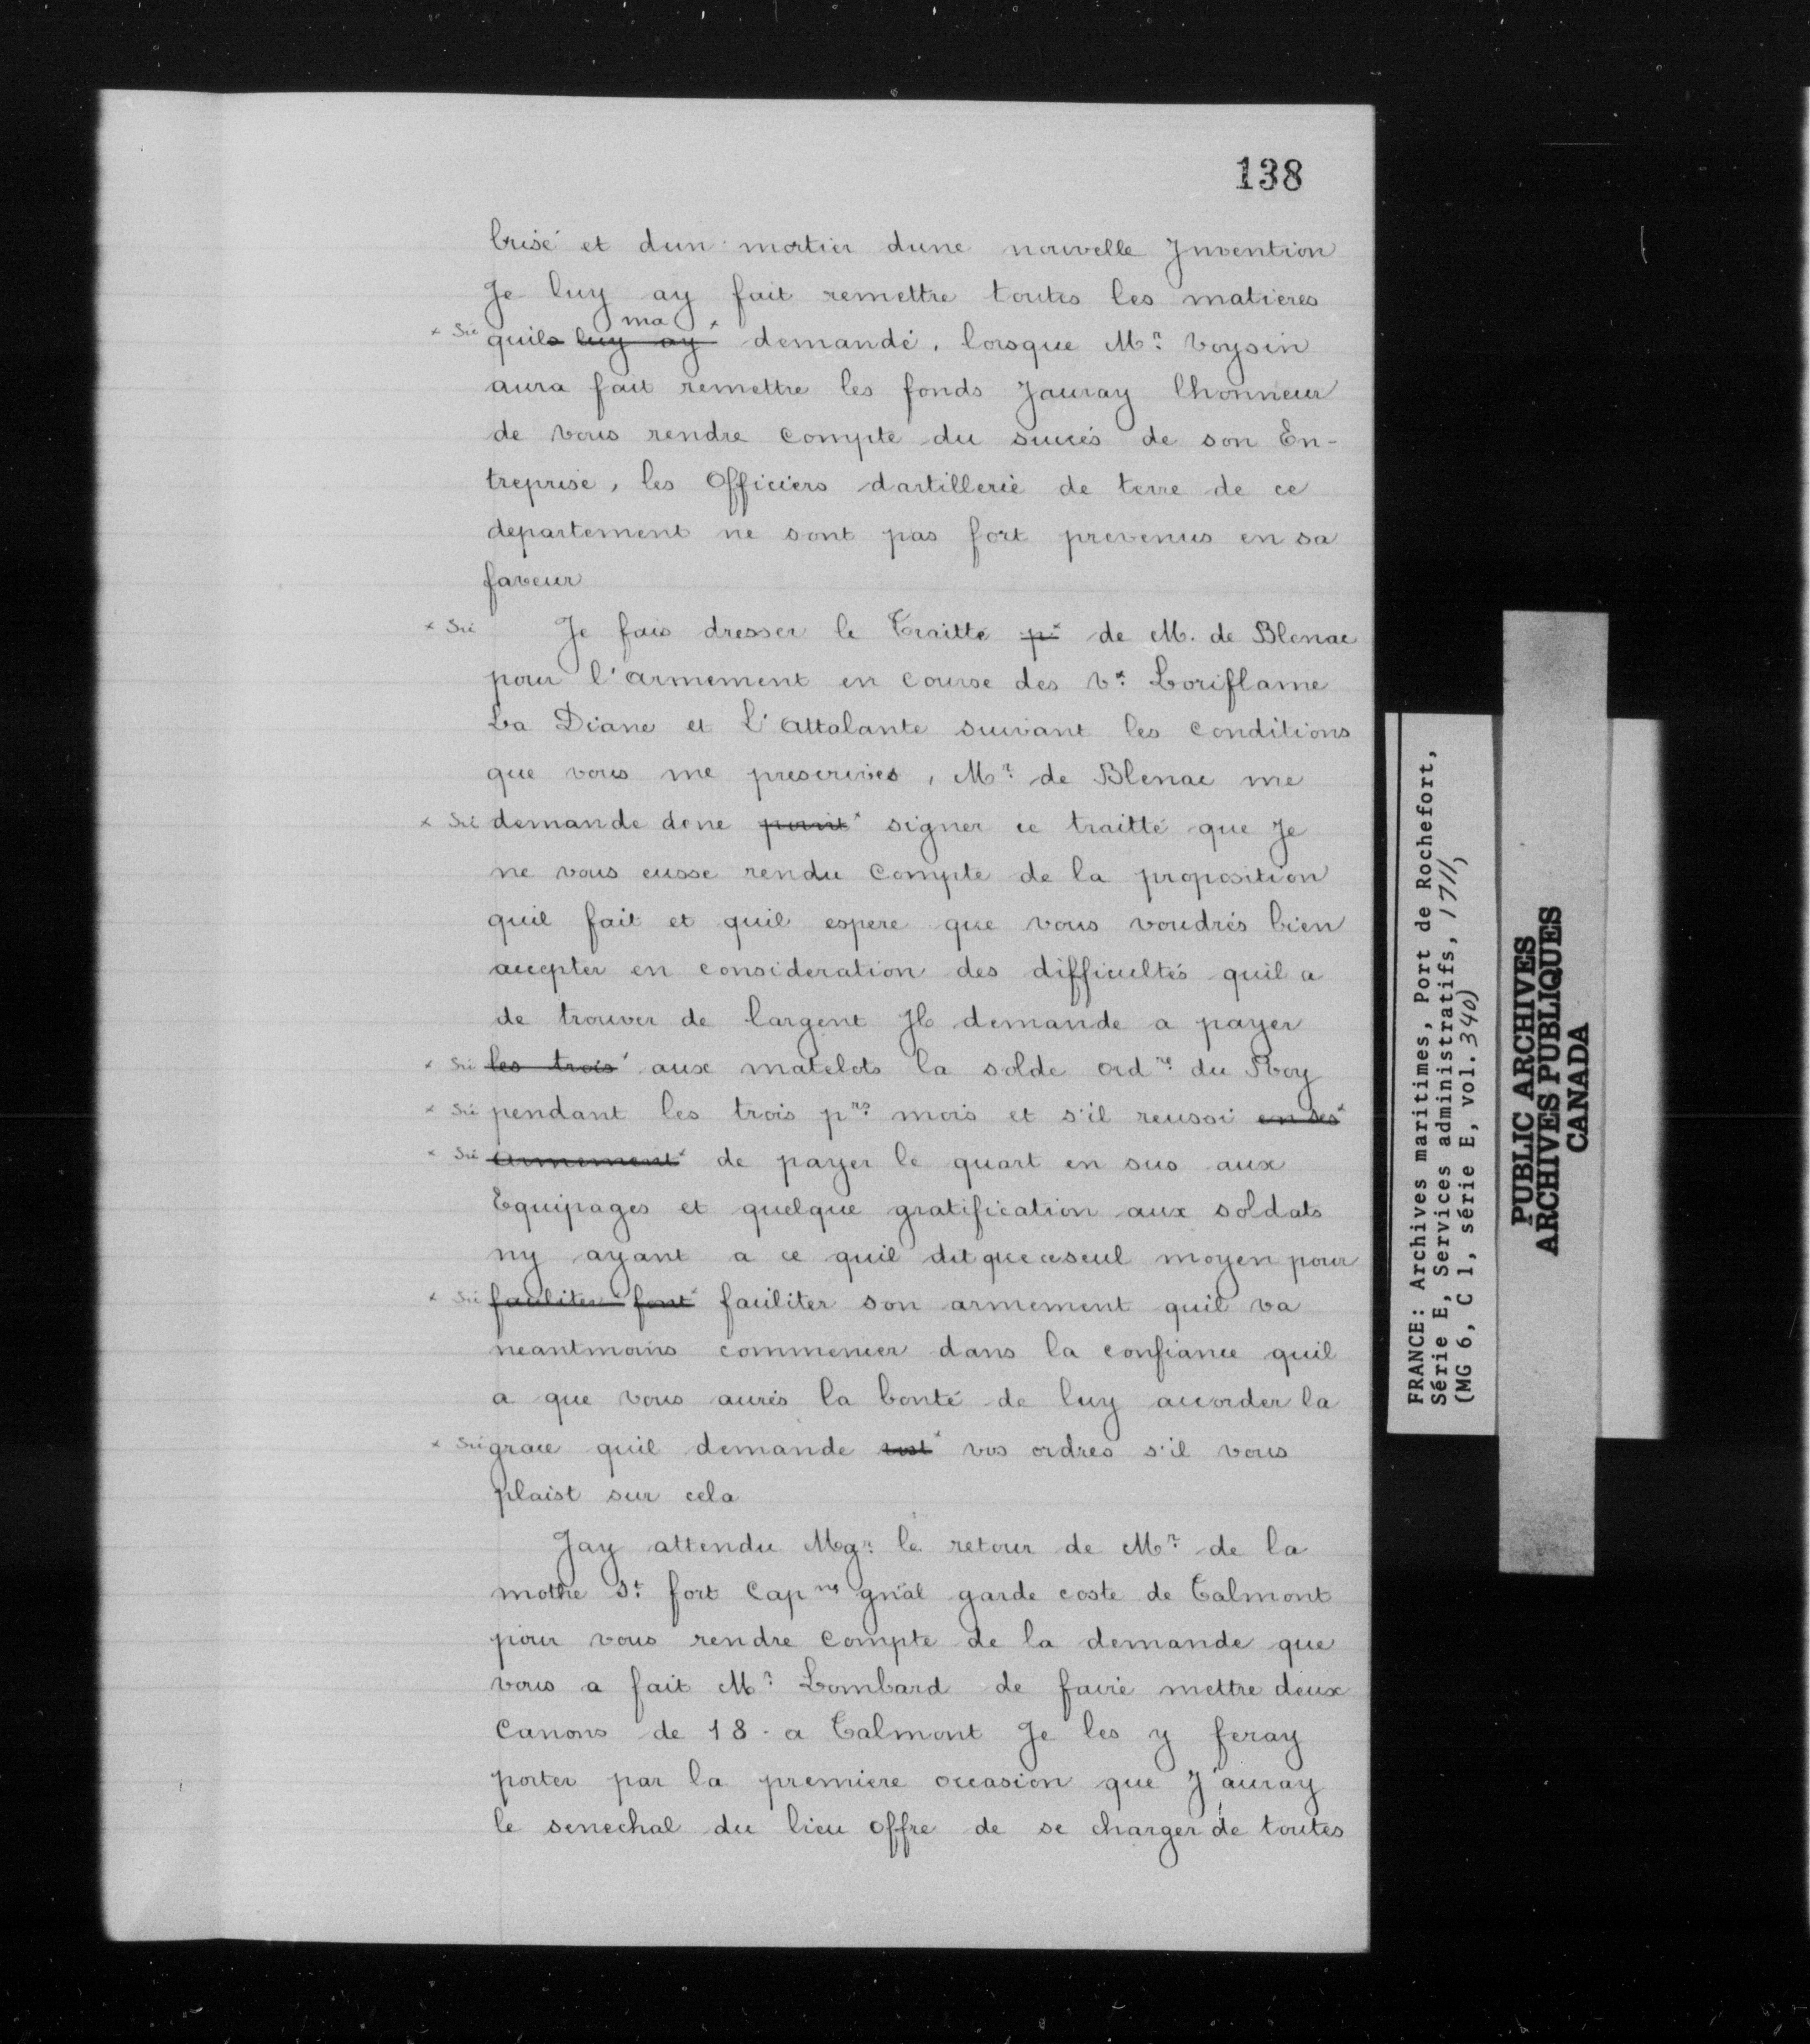 138
brisé et dun mortier dune nouvelle Invention
Je luy ay fait remettre toutes les matieres
x Sic quils luy ay ma x demandé, lorsque Mr. Voysin
aura fait remettre les fonds Jauray lhonneur
de vous rendre compte du succés de son En-
treprise, les Officiers dartillerie de terre de ce
departement ne sont pas fort prevenus en sa
faveur
x Sic Je fais dresser le Traitté px de M. de Blenac
pour l'armement en course des vx. Loriflame
La Diane et L'Attalante suivant les conditions
que vous me prescrivés, Mr. de Blenac me
x Sic demande donc point x signer ce traitté que Je
ne vous eusse rendu compte de la proposition
quil fait et quil espere que vous voudrés bien
accepter en consideration des difficultés quil a
de trouver de largent Il demande a payer
x Sic les trois x aux matelots la solde ordre. du Roy
x Sic pendant les trois prs. mois et s'il reussi en ses x
x Sic armement x de payer le quart en sus aux
Equipages et quelque gratification aux soldats
ny ayant a ce quil dit que ce seul moyen pour
x Sic faciliter font x faciliter son armement quil va
neantmoins commencer dans la confiance quil
a que vous aurés la bonté de luy accorder la
x Sic grace quil demande x vos ordres s'il vous
plaist sur cela
Jay attendu Mgr. le retour de Mr. de la
mothe St. fort Capne gnal garde coste de Talmont
pour vous rendre compte de la demande que
vous a fait Mr. Lombard de faire mettre deux
Canons de 18. a Talmont Je les y feray
porter par la premiere occasion que J'auray
le senechal du lieu offre de se charger de toutes
FRANCE: Archives maritimes, Port de Rochefort,
Série E, Services administratifs, 1711,
(MG 6, C 1, série E, vol. 340)
PUBLIC ARCHIVES
ARCHIVES PUBLIQUES
CANADA